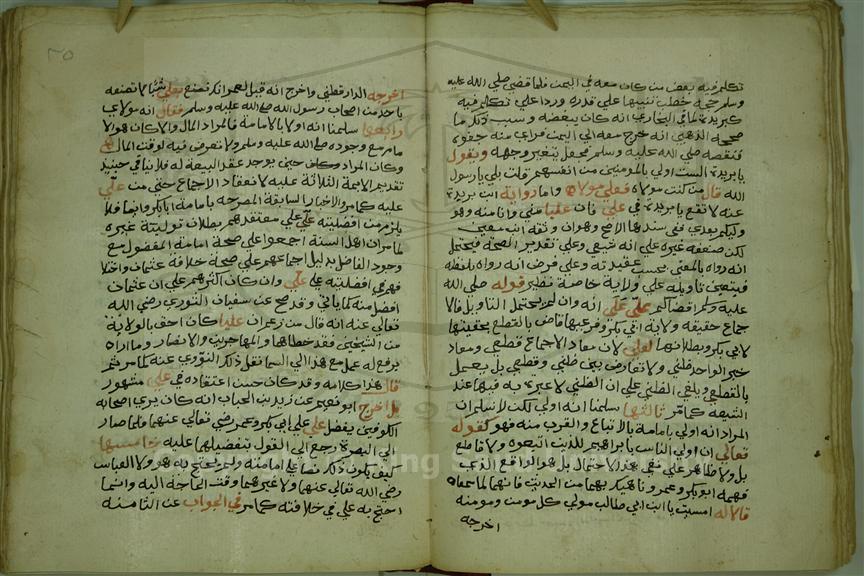 تكلم فيه بعض من كان معه في اليمن فلما قضى صلى الله عليه
وسلم حجه خطب تنبيها على قدره وردا على تكلم فيه
كبريدة لما في البخاري انه كان يبغضه وسبب ذلك ما
صححه الذهبي انه خرج معه الى اليمن فراى منه جفوة
فنقصه صلى الله عليه وسلم فجعل يتغير وجهه ويقول
يا بريدة الست اولى بالمومنين من انفسهم قلت بلى يا رسول
الله قال من كنت مولاه فعلي مولاه واما رواية ابن بريدة
عنه لا تقع يا بريدة في علي فان عليا مني وانا منه وهو
وليكم بعدي ففي سندها الاصح وهو ان وثقه ابن معين
لكن ضعفه غيره على انه شيعي وعلى تقدير الصحة فيحتمل
انه رواه بالمعنى بحسب عقيدته وعلى فرض انه رواه بلفظه
فيتعين تاويله على ولاية خاصة نظير قوله صلى الله
عليه وسلم اقضاكم علي على انه وان لم يحتمل التاويل فالا
جماع حقيقه ولاية ابي بكر وفرعيها قاض بالقطع بحقيتها
لابي بكر وبطلانها لعلي لان مفاد الاجماع قطعي ومفاد
خبر الواحد ظني ولا تعارض بين ظني وقطعي بل يعمل
بالقطعي ويلغي الظني على ان الظني لا عبرة به فيها عند
الشيعه كما مر ثالثها سلمنا انه اولى لكن لا نسلم ان
المراد انه اولى بامامة بالاتباع والقرب منه فهو كقوله
تعالى ان اولى الناس بابراهيم للذين اتبعوه ولا قاطع
بل ولا ظاهر على نفي هذا الاحتمال بل هو الواقع اذ هو الذي
فهمه ابو بكر وعمر وناهيك بهما من الحديث فانهما لما سمعاه
قالا له امسيت يا ابن ابي طالب مولى كل مومن ومومنة
اخرجه
٣٥
اخرجه الدارقطني واخرج انه قيل لعمر انك تصنع بعلي شيئا لا تصنعه
باحد من اصحاب رسول الله صلى الله عليه وسلم فقال انه مولاي
رابعها سلمنا انه اولى بالامامة فالمراد المال والا كان هو الا
مام مع وجوده صلى الله عليه وسلم ولا تعرض فيه لوقت المال
وكان المراد حين يوجد عقد البيعة له فلا ينافي حينئذ
تقديم الائمة الثلاثة عليه لانعقاد الاجماع حتى من علي
عليه كما مر والاخبار السابقة المصرحه بامامة ابي بكر وايضا فلا
يلزم من افضليته على معتقدهم بطلان توليته غيره
لما مر ان اهل السنة اجمعوا على صحة امامة المفضول مع
وجود الفاضل بدليل اجماعهم على صحة خلافة عثمان واختلا
فهم في افضليته على علي وان كان اكثرهم على ان عثمان
افضل منه كما ياتي وقد صح عن سفيان الثوري رضي الله
تعالى عنه انه قال من زعم ان عليا كان احق بالولاية
من الشيخين فقد خطاهما والمهاجرين والانصار وما اراه
يرفع له عمل مع هذا الى السما نقل ذلك النووي عنه كما مر ثم
قال هذا كلامه وقد كان حسن اعتقاده في علي مشهور
بل اخرج ابو نعيم عن زيد بن الحباب انه كان يرى راي اصحابه
الكوفيين يفضل علي على ابي بكر وعمر رضي تعالى عنهما فلما صار
الى البصرة رجع الى القول بتفضيلهما عليه خامسها
كيف يكون ذلك نصا على امامته ولم يحتج به هو ولا العباس
رضي الله تعالى عنهما ولا غيرهما وقت الحاجة اليه وانما
احتج به علي في خلافته كما مر في الجواب عن الثامنه